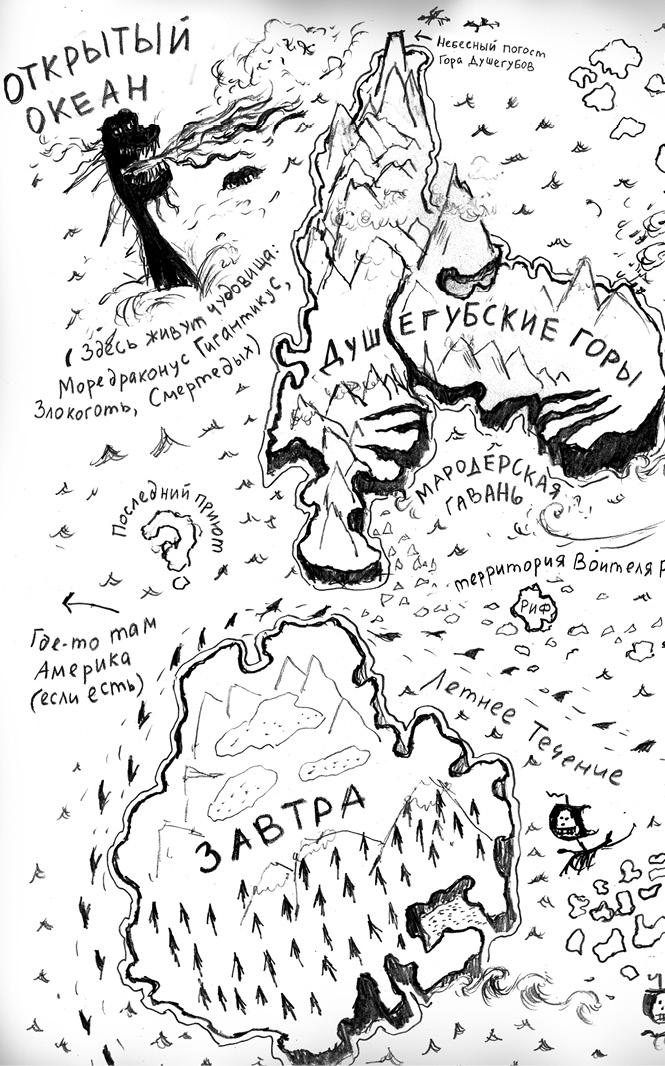 ОТКРЫТЫЙ
ОКЕАН
Небесный погост
Гора Душегубов
(Здесь живут чудовища:
Мореdраконус Гигантикус,
Злокоготь, Смертедых)
ДУШЕГУБСКИЕ ГОРЫ
МАРОДЁРСКАЯ
ГАВАНЬ
Последний приют
территория Воителя Р
РИФ
Где-то там
Америка
(если есть)
Летнее Течение
ЗАВТРА